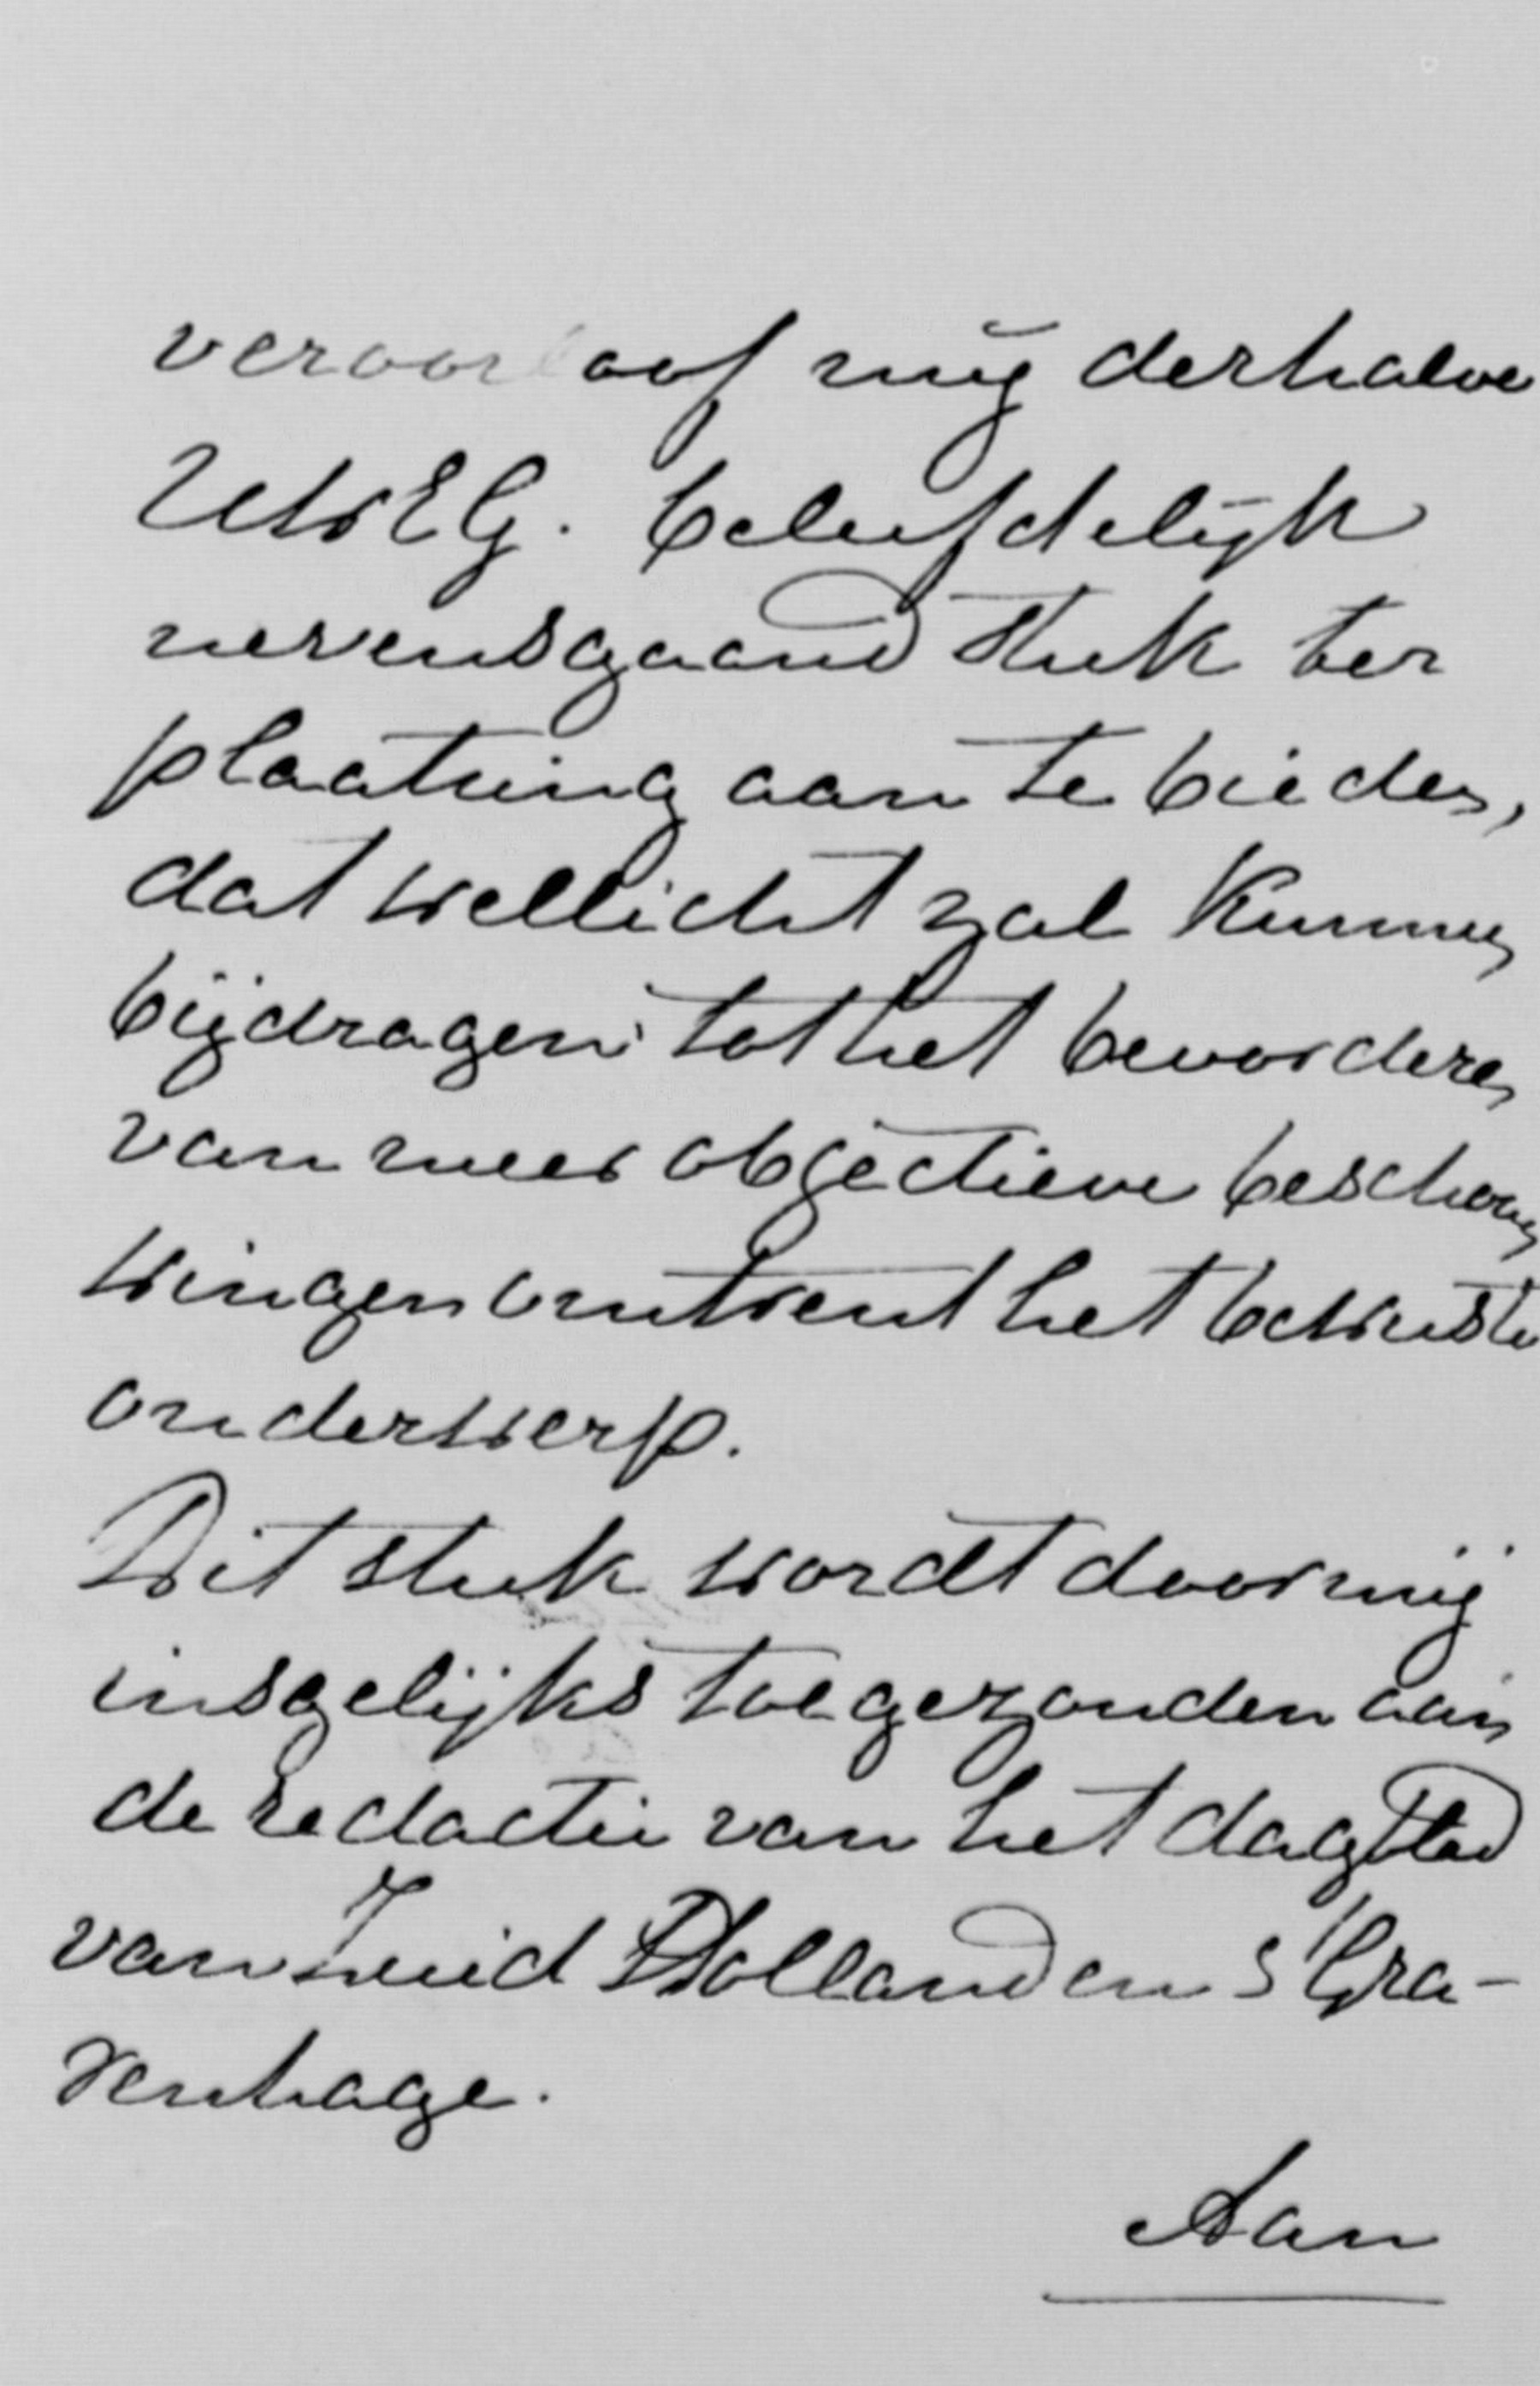 veroorloof mij derhalve
UWEG. beleefdelijk
nevensgaand stuk ter
plaatsing aan te bieden,
dat wellicht zal kunnen
bijdragen tot het bevorderen
van meer objectieve beschou
wingen omtrent het bewuste
onderwerp.
Dit stuk wordt door mij
insgelijks toegezonden aan
de redactie van het dagblad
van Zuid Holland en s'Gra-
venhage.
Aan